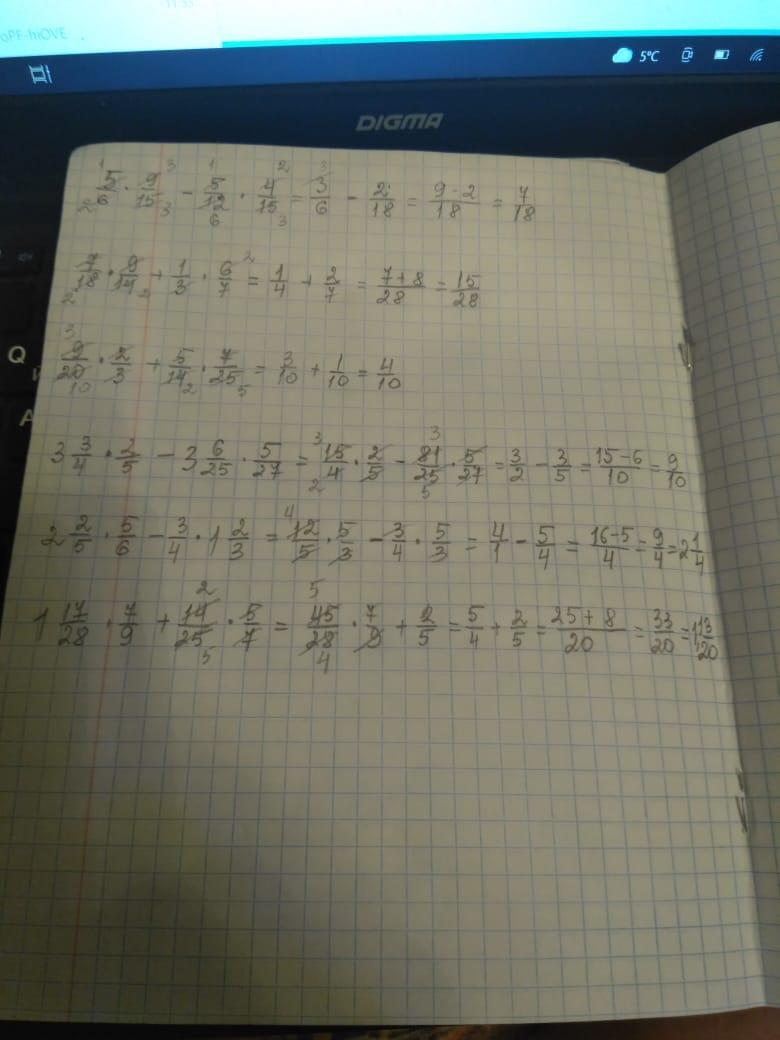 11:53
5°C
DIGMA
Q
A
5/6 · 9/15 - 5/12 · 4/15 = 3/6 - 2/18 = 9-2/18 = 7/18
7/18 · 9/14 + 1/3 · 6/7 = 1/4 + 2/7 = 7+8/28 = 15/28
9/20 · 2/3 + 5/14 · 7/25 = 3/10 + 1/10 = 4/10
3 3/4 · 2/5 - 3 6/25 · 5/27 = 15/4 · 2/5 - 81/25 · 5/27 = 3/2 - 3/5 = 15-6/10 = 9/10
2 2/5 · 5/6 - 3/4 · 1 2/3 = 12/5 · 5/3 - 3/4 · 5/3 = 4/1 - 5/4 = 16-5/4 = 9/4 = 2 1/4
1 17/28 · 7/9 + 14/25 · 5/7 = 45/28 · 7/9 + 2/5 = 5/4 + 2/5 = 25+8/20 = 33/20 = 1 13/20